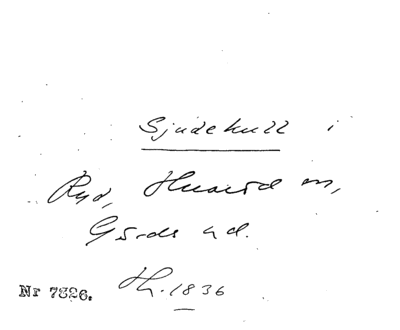 Sjudekull i
Ryd, Huaröd sn,
Gärds hd.
Nr 1836